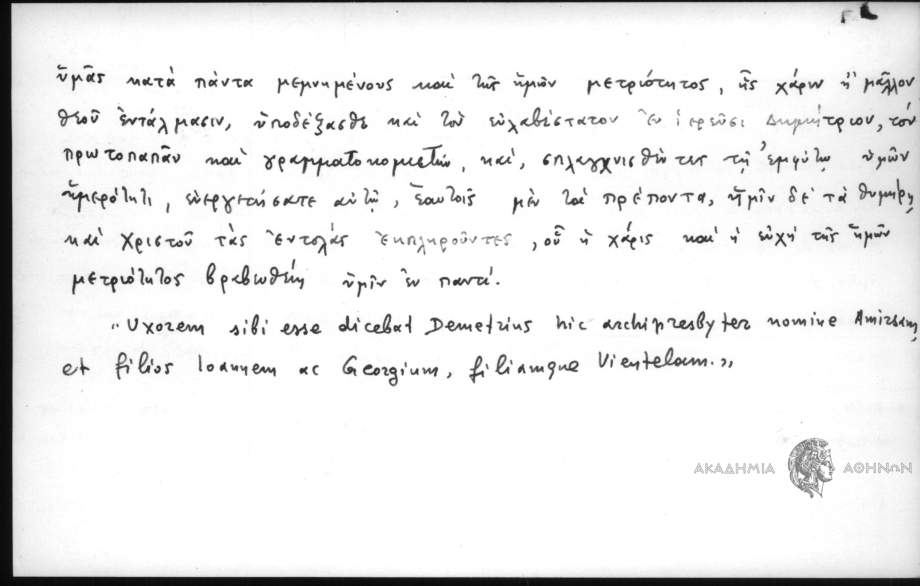 ὑμᾶς κατὰ πάντα μεμνημένους καὶ τῆς ἡμῶν μετριότητος, ἧς χάριν ἢ μᾶλλον
θεοῦ ἐντάλμασιν, ὑποδέξασθε καὶ τὸν εὐλαβέστατον ἐν ἱερεῦσι Δημήτριον, τὸν
πρωτοπαπᾶν καὶ γραμματοκομιστήν, καὶ, σπλαγχνισθέντες τῇ ἐμφύτῳ ὑμῶν
ἡμερότητι, εὐεργετήσατε αὐτῷ, ἑαυτοῖς μὲν τὰ πρέποντα, ἡμῖν δὲ τὰ θυμήρη,
καὶ Χριστοῦ τὰς ἐντολὰς ἐκπληροῦντες, οὗ ἡ χάρις καὶ ἡ εὐχὴ τῆς ἡμῶν
μετριότητος βραβευθείη ὑμῖν ἐν παντί.
"Uxorem sibi esse dicebat Demetrius hic archipresbyter nomine Amirsam,
et filios Ioannem ac Georgium, filiamque Vientelam."
ΑΚΑΔΗΜΙΑ ΑΘΗΝΩΝ